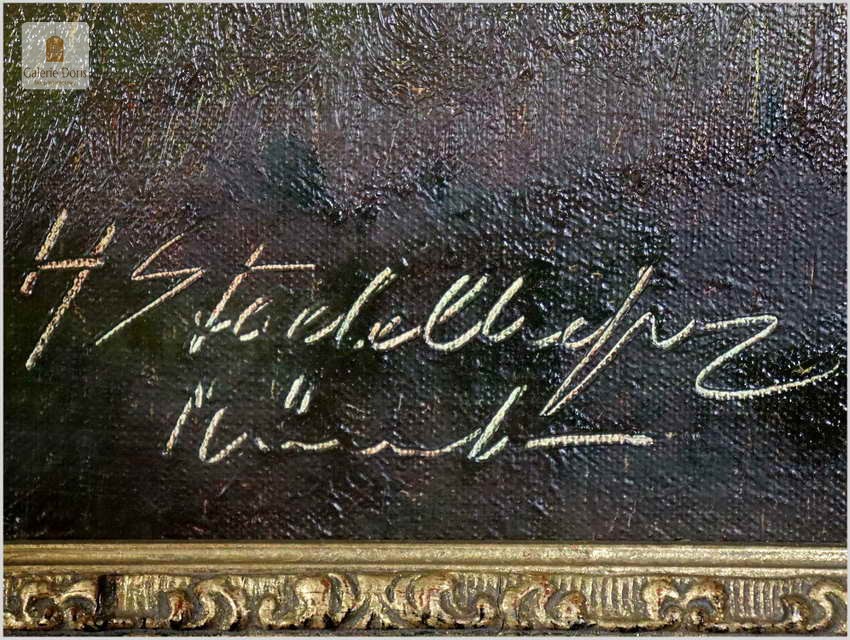 Galerie Doris
H Stadelhofer
München